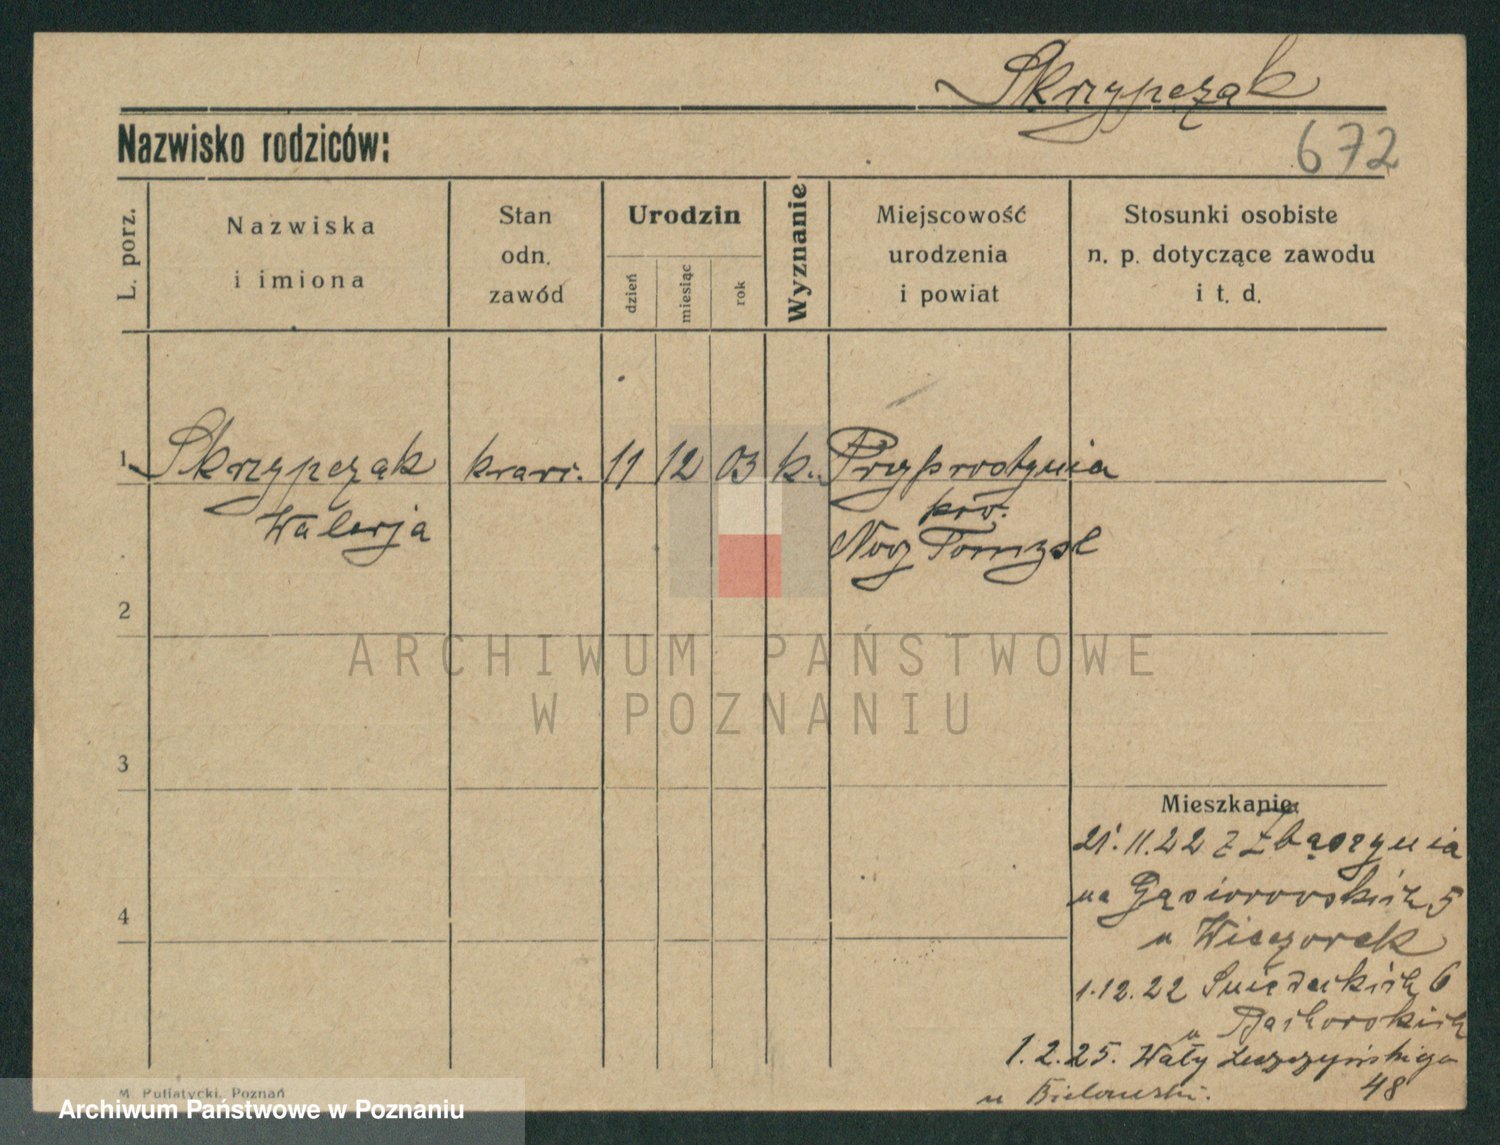 Skrzypczak
Nazwisko rodziców:
672
L. porz.
Nazwiska
i imiona
Stan
odn.
zawód
Urodzin
dzień
miesiąc
rok
Wyznanie
Miejscowość
urodzenia
i powiat
Stosunki osobiste
n. p. dotyczące zawodu
i t. d.
1 Skrzypczak kraw. 11 12 03 k. Przyprostynia
Walerja
pow.
Nowy Tomysl
2
ARCHIWUM PAŃSTWOWE
W POZNANIU
3
Mieszkanie:
21.11.22 z Zbąszynia
na Gąsiorowskich 5
u Wieczorek
4
1.12.22 Śniadeckich 6
u
1.2.25. Wały Leszczyńskiego
48
u Bielawski.
M. Putiatycki, Poznań
Archiwum Państwowe w Poznaniu